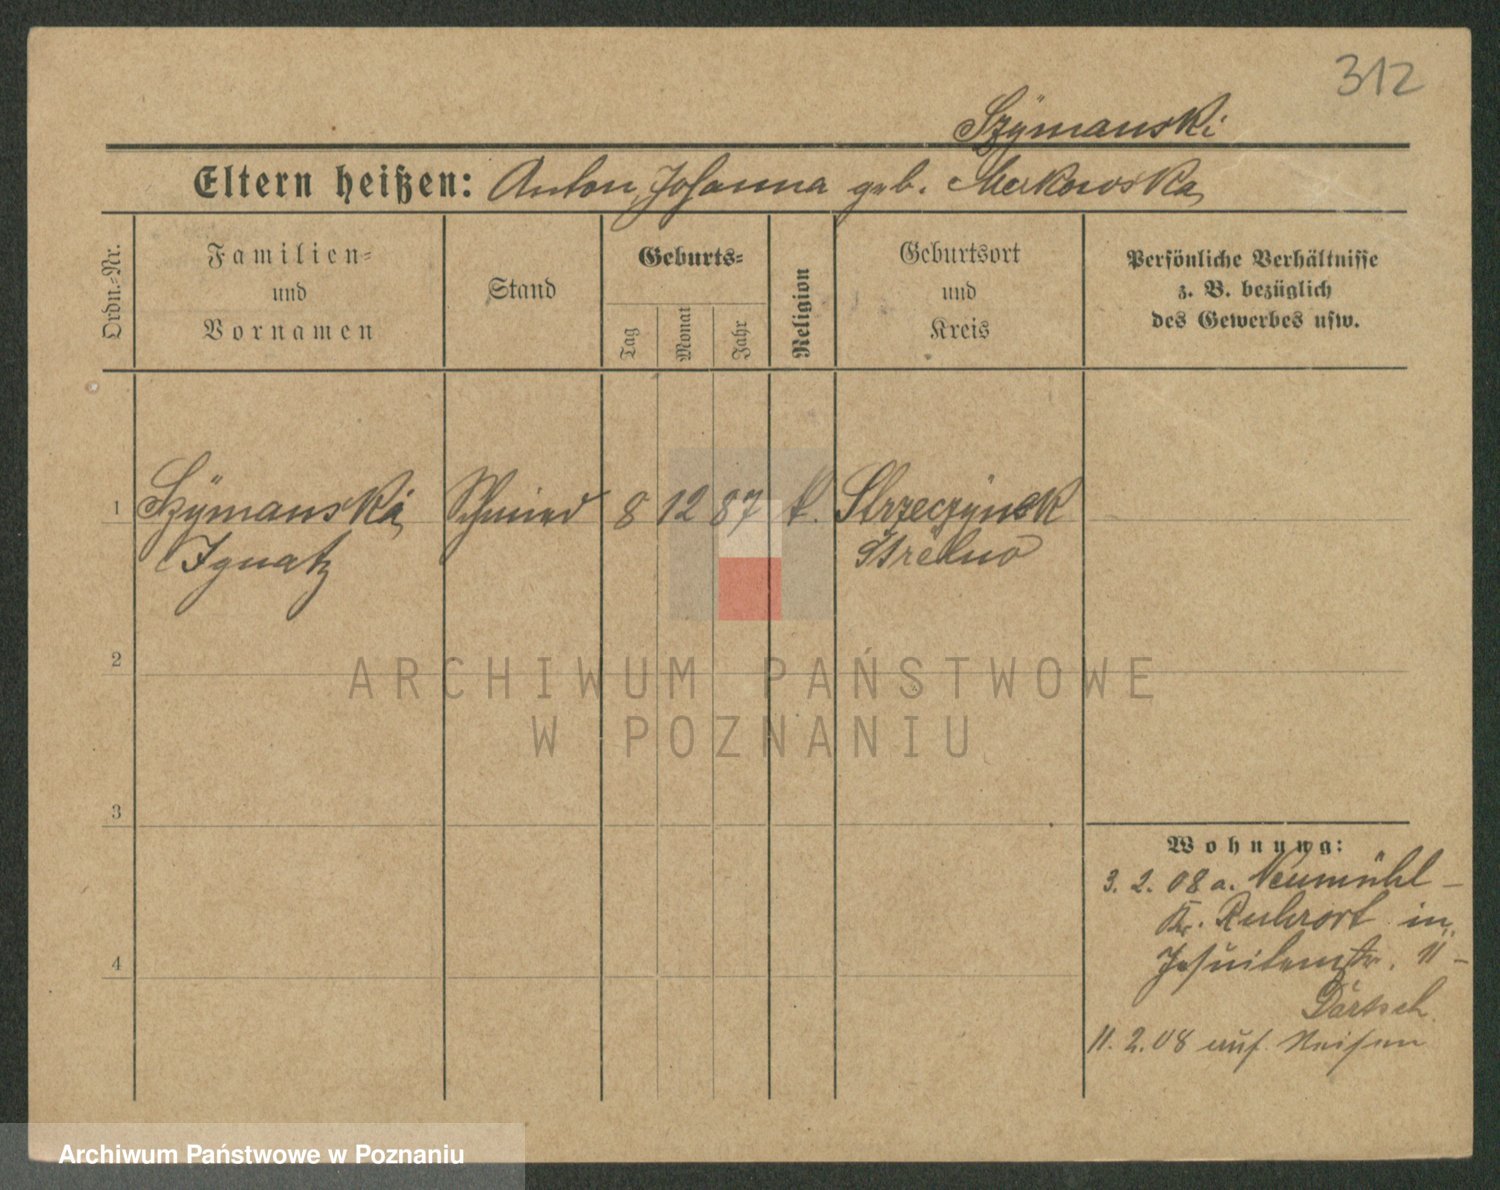 312
Szÿmanski
Eltern heißen: Anton, Johanna geb. Makowska
Ordn.-Nr.
Familien-
und
Vornamen
Stand
Geburts-
Tag
Monat
Jahr
Religion
Geburtsort
und
Kreis
Persönliche Verhältnisse
z. B. bezüglich
des Gewerbes usw.
1 Szÿmanski Schmied 8 12 87 k. Strzeczÿnek
Ignatz Strelno
2
ARCHIWUM PAŃSTWOWE
W POZNANIU
3
Wohnung:
3. 2. 08 a. Neumühl –
Kr. Ruhrort in
Jesuitenstr. 11 –
4
Bartsch
11. 2. 08 auf Reisen
Archiwum Państwowe w Poznaniu